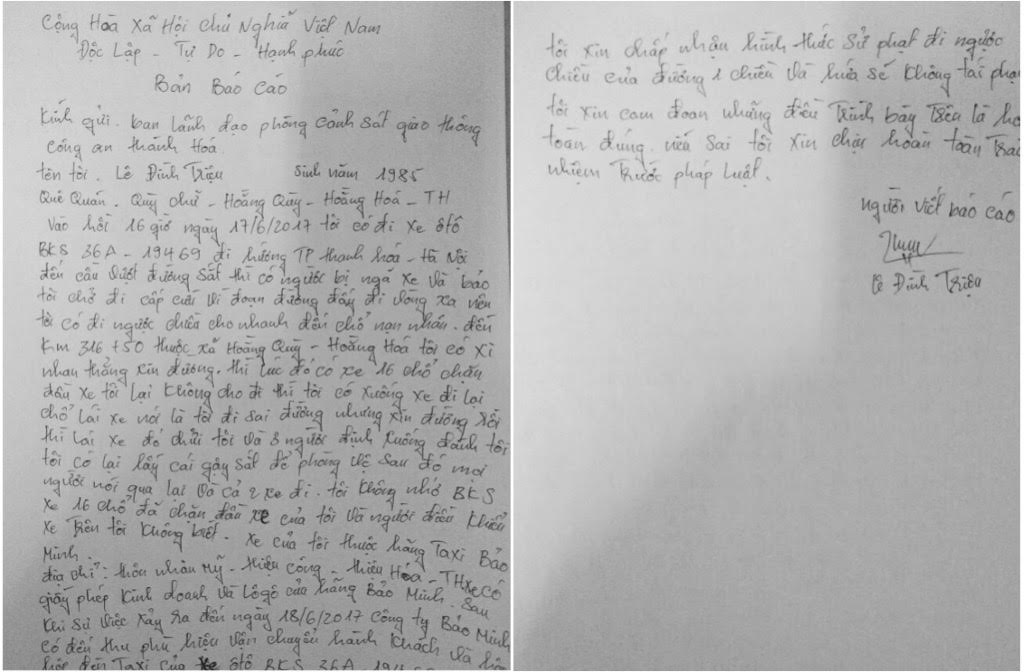 Cộng Hoà Xã Hội Chủ Nghĩa Việt Nam
Độc Lập - Tự Do - Hạnh phúc
Bản Báo Cáo
Kính gửi. ban lãnh đạo phòng cảnh sát giao thông
công an thanh Hoá.
tên tôi. Lê Đình Triệu sinh năm 1985
Quê Quán. Quỳ chữ - Hoằng Quỳ - Hoằng Hoá - TH
Vào hồi 16 giờ ngày 17/6/2017 tôi có đi xe ôtô
BKS 36A - 19469 đi hướng TP thanh hoá - Hà Nội
đến cầu vượt đường sắt thì có người bị ngã xe và bảo
tôi chở đi cấp cứu vì đoạn đường đấy đi vòng xa nên
tôi có đi ngược chiều cho nhanh đến chổ nạn nhân. đến
Km 316 +50 thuộc xã Hoằng Quỳ - Hoằng Hoá tôi có xi
nhan thẳng xin đường. thì lúc đó có xe 16 chổ chặn
đầu xe tôi lại không cho đi thì tôi có xuống xe đi lại
chổ lái xe nói là tôi đi sai đường nhưng xin đường rồi
thì lái xe đó chửi tôi và 8 người định xuống đánh tôi
tôi có lại lấy cái gậy sắt để phòng vệ sau đó mọi
người nói qua lại và cả 2 xe đi. tôi không nhớ BKS
xe 16 chổ đã chặn đầu xe của tôi và người điều khiển
xe trên tôi không biết. xe của tôi thuộc hãng Taxi Bảo
Minh.
địa chỉ: thôn nhân Mỹ - thiệu công - thiệu Hóa - TH xe có
giấy phép kinh doanh và Lôgô của hãng Bảo Minh. sau
khi sự việc xảy ra đến ngày 18/6/2017 công ty Bảo Minh
có đến thu phù hiệu vận chuyển hành khách và
đèn Taxi của xe ôtô BKS 36A
tôi xin chấp nhận hình thức sử phạt đi ngược
chiều của đường 1 chiều và hứa sẽ không tái phạ
tôi xin cam đoan những điều trình bày trên là ho
toàn đúng. nếu sai tôi xin chịu hoàn toàn trác
nhiệm trước pháp luật.
người viết báo cáo
Lê Đình Triệu